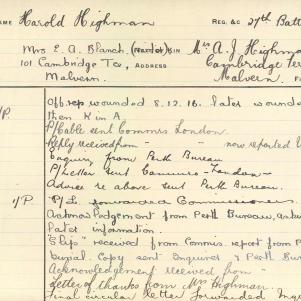 NAME Harold Highman REG. &c 27th Batt
Mrs E. A. Blanch. (Need or) KIN Mrs A. J. Highma
101 Cambridge Tce, ADDRESS Cambridge Ter
Malvern. Malvern
/P. Off. rep wounded 8.12.16. later wound
then K in A
P/Cable sent Commrs London.
Reply received from - now reported
Enquiry from Perth Bureau
P/Letter sent Commrs - London -
Advice re above sent Perth Bureau.
1/P. P/L forwarded Commissioners
Acknowledgement from Perth Bureau,
later information.
"Slip" received from Commis. report from
burial. Copy sent Enquirer & Perth Bur
Acknowledgement received from -
Letter of thanks from Mrs Highman.
Final circular letter forwarded